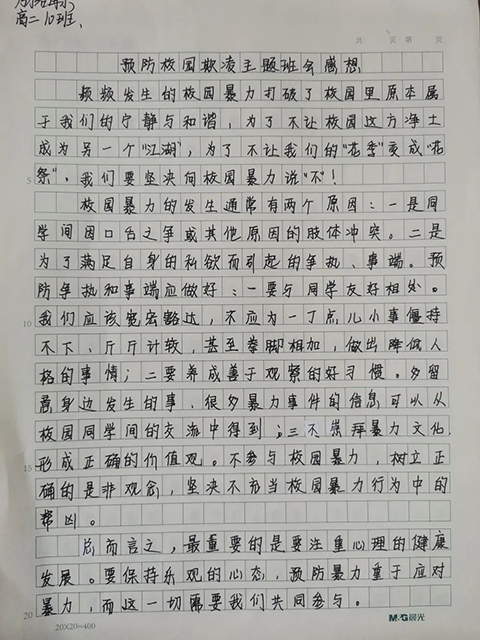 高二10班.
共 页 第 页
预防校园欺凌主题班会感想
频频发生的校园暴力打破了校园里原本属
于我们的宁静与和谐，为了不让校园这方净土
成为另一个"江湖"，为了不让我们的"花季"变成"花
祭"，我们要坚决向校园暴力说"不"！
5
校园暴力的发生通常有两个原因：一是同
学间因口舌之争或其他原因的肢体冲突。二是
为了满足自身的私欲而引起的争执、事端。预
防争执和事端应做好：一要与同学友好相处。
10
我们应该宽宏豁达，不应为一丁点儿小事僵持
不下、斤斤计较，甚至拳脚相加，做出降低人
格的事情；二要养成善于观察的好习惯。多留
意身边发生的事，很多暴力事件的信息可以从
校园同学间的交流中得到；三不崇拜暴力文化，
15
形成正确的价值观。不参与校园暴力，树立正
确的是非观念，坚决不充当校园暴力行为中的
帮凶。
总而言之，最重要的是要注重心理的健康
发展。要保持乐观的心态，预防暴力重于应对
20
暴力，而这一切需要我们共同参与。
20×20=400
M&G晨光